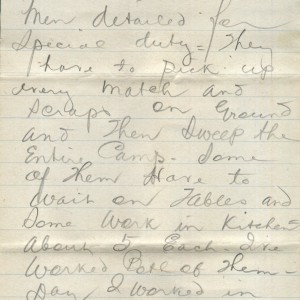 Men detailed for
Special duty = They
have to pick up
every Match and
Scraps on Ground
and Then Sweep the
Entire Camp - Some
of Them Have to
Wait on Tables and
Some Work in Kitchen
About 5 Each - I've
Worked Both of Them -
Day I worked in